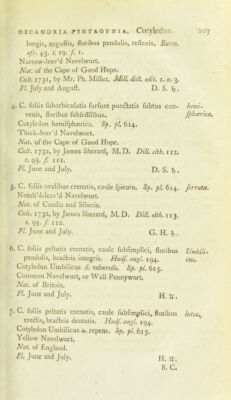 DECANDRIA PENTAGYNIA. Cotyledon. 107
longis, angustis, floribus pendulis, reflexis. Burm.
afr. 43. t. 19. f. 1.
Narrow-leav'd Navelwort.
Nat. of the Cape of Good Hope.
Cult. 1732, by Mr. Ph. Miller. Mill. dict. edit. 1. n. 3.
Fl. July and August. D. S. ♄.
4. C. foliis suborbiculatis furfure punctatis subtus con- hemi-
vexis, floribus subsessilibus. sphærica.
Cotyledon hemisphærica. Sp. pl. 614.
Thick-leav'd Navelwort.
Nat. of the Cape of Good Hope.
Cult. 1732, by James Sherard, M.D. Dill. elth. 112.
t. 95. f. 111.
Fl. June and July. D. S. ♄.
5. C. foliis ovalibus crenatis, caule spicato. Sp. pl. 614. serrata.
Notch'd-leav'd Navelwort.
Nat. of Candia and Siberia.
Cult. 1732, by James Sherard, M.D. Dill. elth. 113.
t. 95. f. 112.
Fl. June and July. G. H. ♄.
6. C. foliis peltatis crenatis, caule subsimplici, floribus Umbili-
pendulis, bracteis integris. Huds. angl. 194. cus.
Cotyledon Umbilicus α. tuberosa. Sp. pl. 615.
Common Navelwort, or Wall Pennywort.
Nat. of Britain.
Fl. June and July. H. ♃.
7. C. foliis peltatis crenatis, caule subsimplici, floribus lutea.
erectis, bracteis dentatis. Huds. angl. 194.
Cotyledon Umbilicus β. repens. Sp. pl. 615.
Yellow Navelwort.
Nat. of England.
Fl. June and July. H. ♃.
8. C.